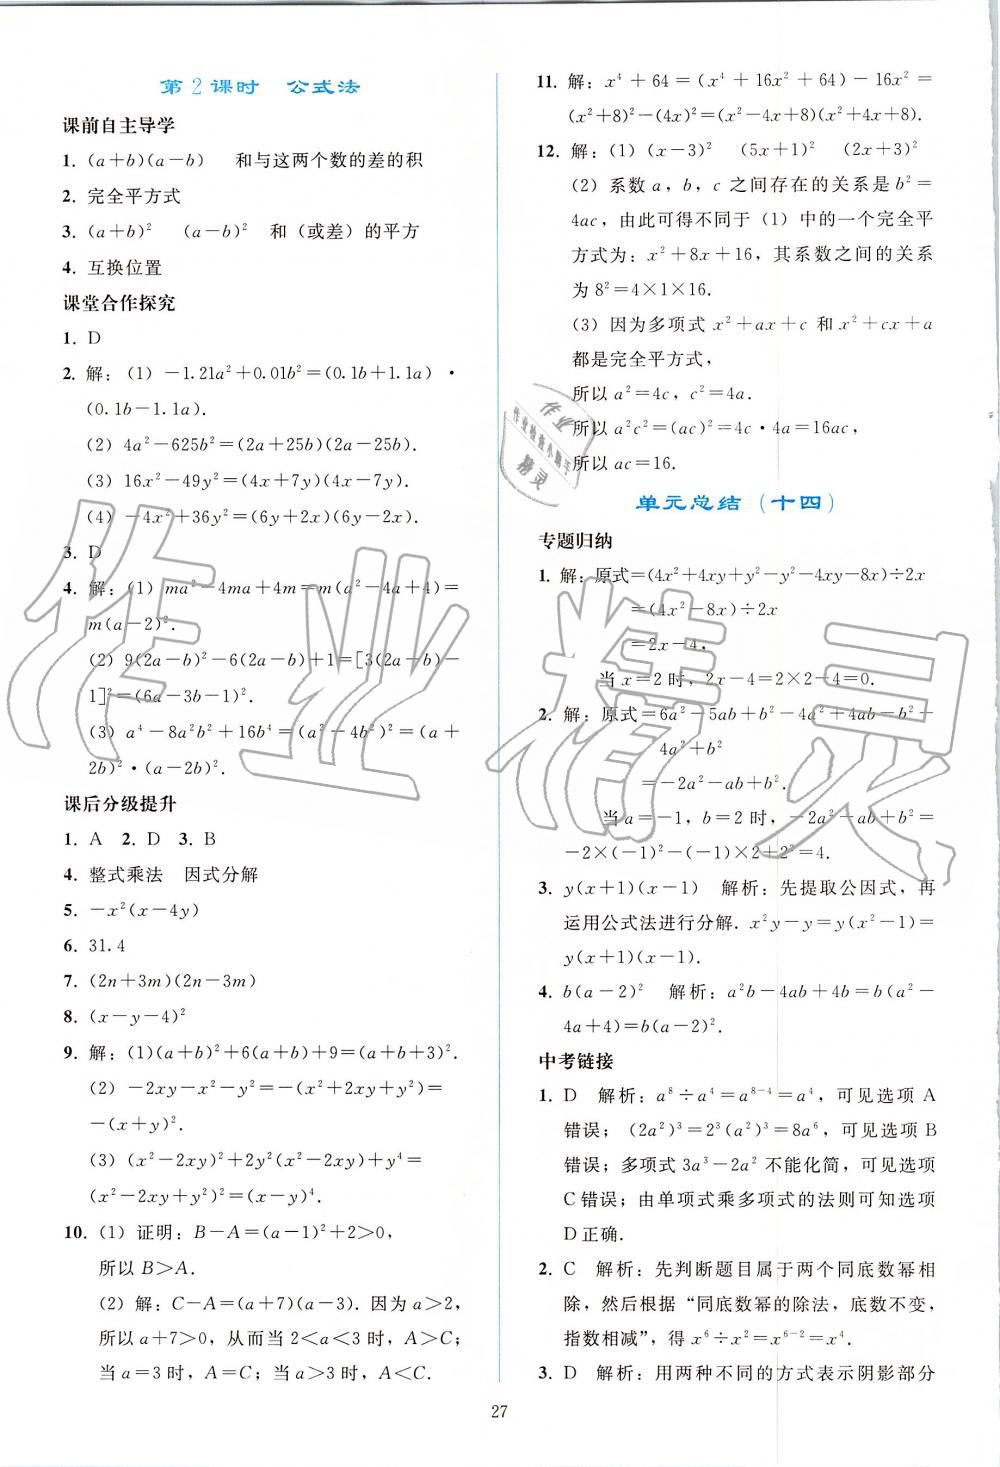 第2课时　公式法
课前自主导学
1. (a+b)(a-b)　和与这两个数的差的积
2. 完全平方式
3. (a+b)²　(a-b)²　和(或差)的平方
4. 互换位置
课堂合作探究
1. D
2. 解:(1) -1.21a²+0.01b²=(0.1b+1.1a)·
(0.1b-1.1a).
(2) 4a²-625b²=(2a+25b)(2a-25b).
(3) 16x²-49y²=(4x+7y)(4x-7y).
(4) -4x²+36y²=(6y+2x)(6y-2x).
3. D
4. 解:(1) ma²-4ma+4m=m(a²-4a+4)=
m(a-2)².
(2) 9(2a-b)²-6(2a-b)+1=[3(2a-b)-
1]²=(6a-3b-1)².
(3) a⁴-8a²b²+16b⁴=(a²-4b²)²=(a+
2b)²·(a-2b)².
课后分级提升
1. A　2. D　3. B
4. 整式乘法　因式分解
5. -x²(x-4y)
6. 31.4
7. (2n+3m)(2n-3m)
8. (x-y-4)²
9. 解:(1)(a+b)²+6(a+b)+9=(a+b+3)².
(2) -2xy-x²-y²=-(x²+2xy+y²)=
-(x+y)².
(3) (x²-2xy)²+2y²(x²-2xy)+y⁴=
(x²-2xy+y²)²=(x-y)⁴.
10. (1) 证明:B-A=(a-1)²+2>0,
所以B>A.
(2) 解:C-A=(a+7)(a-3).因为a>2,
所以a+7>0,从而当2<a<3时,A>C;
当a=3时,A=C;当a>3时,A<C.
11. 解:x⁴+64=(x⁴+16x²+64)-16x²=
(x²+8)²-(4x)²=(x²-4x+8)(x²+4x+8).
12. 解:(1) (x-3)²　(5x+1)²　(2x+3)²
(2) 系数a,b,c之间存在的关系是b²=
4ac,由此可得不同于(1)中的一个完全平
方式为:x²+8x+16,其系数之间的关系
为8²=4×1×16.
(3) 因为多项式x²+ax+c和x²+cx+a
都是完全平方式,
所以a²=4c,c²=4a.
所以a²c²=(ac)²=4c·4a=16ac,
所以ac=16.
单元总结(十四)
专题归纳
1. 解:原式=(4x²+4xy+y²-y²-4xy-8x)÷2x
=(4x²-8x)÷2x
=2x-4,
当x=2时,2x-4=2×2-4=0.
2. 解:原式=6a²-5ab+b²-4a²+4ab-b²-
4a²+b²
=-2a²-ab+b².
当a=-1,b=2时,-2a²-ab+b²=
-2×(-1)²-(-1)×2+2²=4.
3. y(x+1)(x-1)　解析:先提取公因式,再
运用公式法进行分解.x²y-y=y(x²-1)=
y(x+1)(x-1).
4. b(a-2)²　解析:a²b-4ab+4b=b(a²-
4a+4)=b(a-2)².
中考链接
1. D　解析:a⁸÷a⁴=a⁸⁻⁴=a⁴,可见选项A
错误;(2a²)³=2³(a²)³=8a⁶,可见选项B
错误;多项式3a³-2a²不能化简,可见选项
C错误;由单项式乘多项式的法则可知选项
D正确.
2. C　解析:先判断题目属于两个同底数幂相
除,然后根据“同底数幂的除法,底数不变,
指数相减”,得x⁶÷x²=x⁶⁻²=x⁴.
3. D　解析:用两种不同的方式表示阴影部分
27
作业精灵
作业
精灵